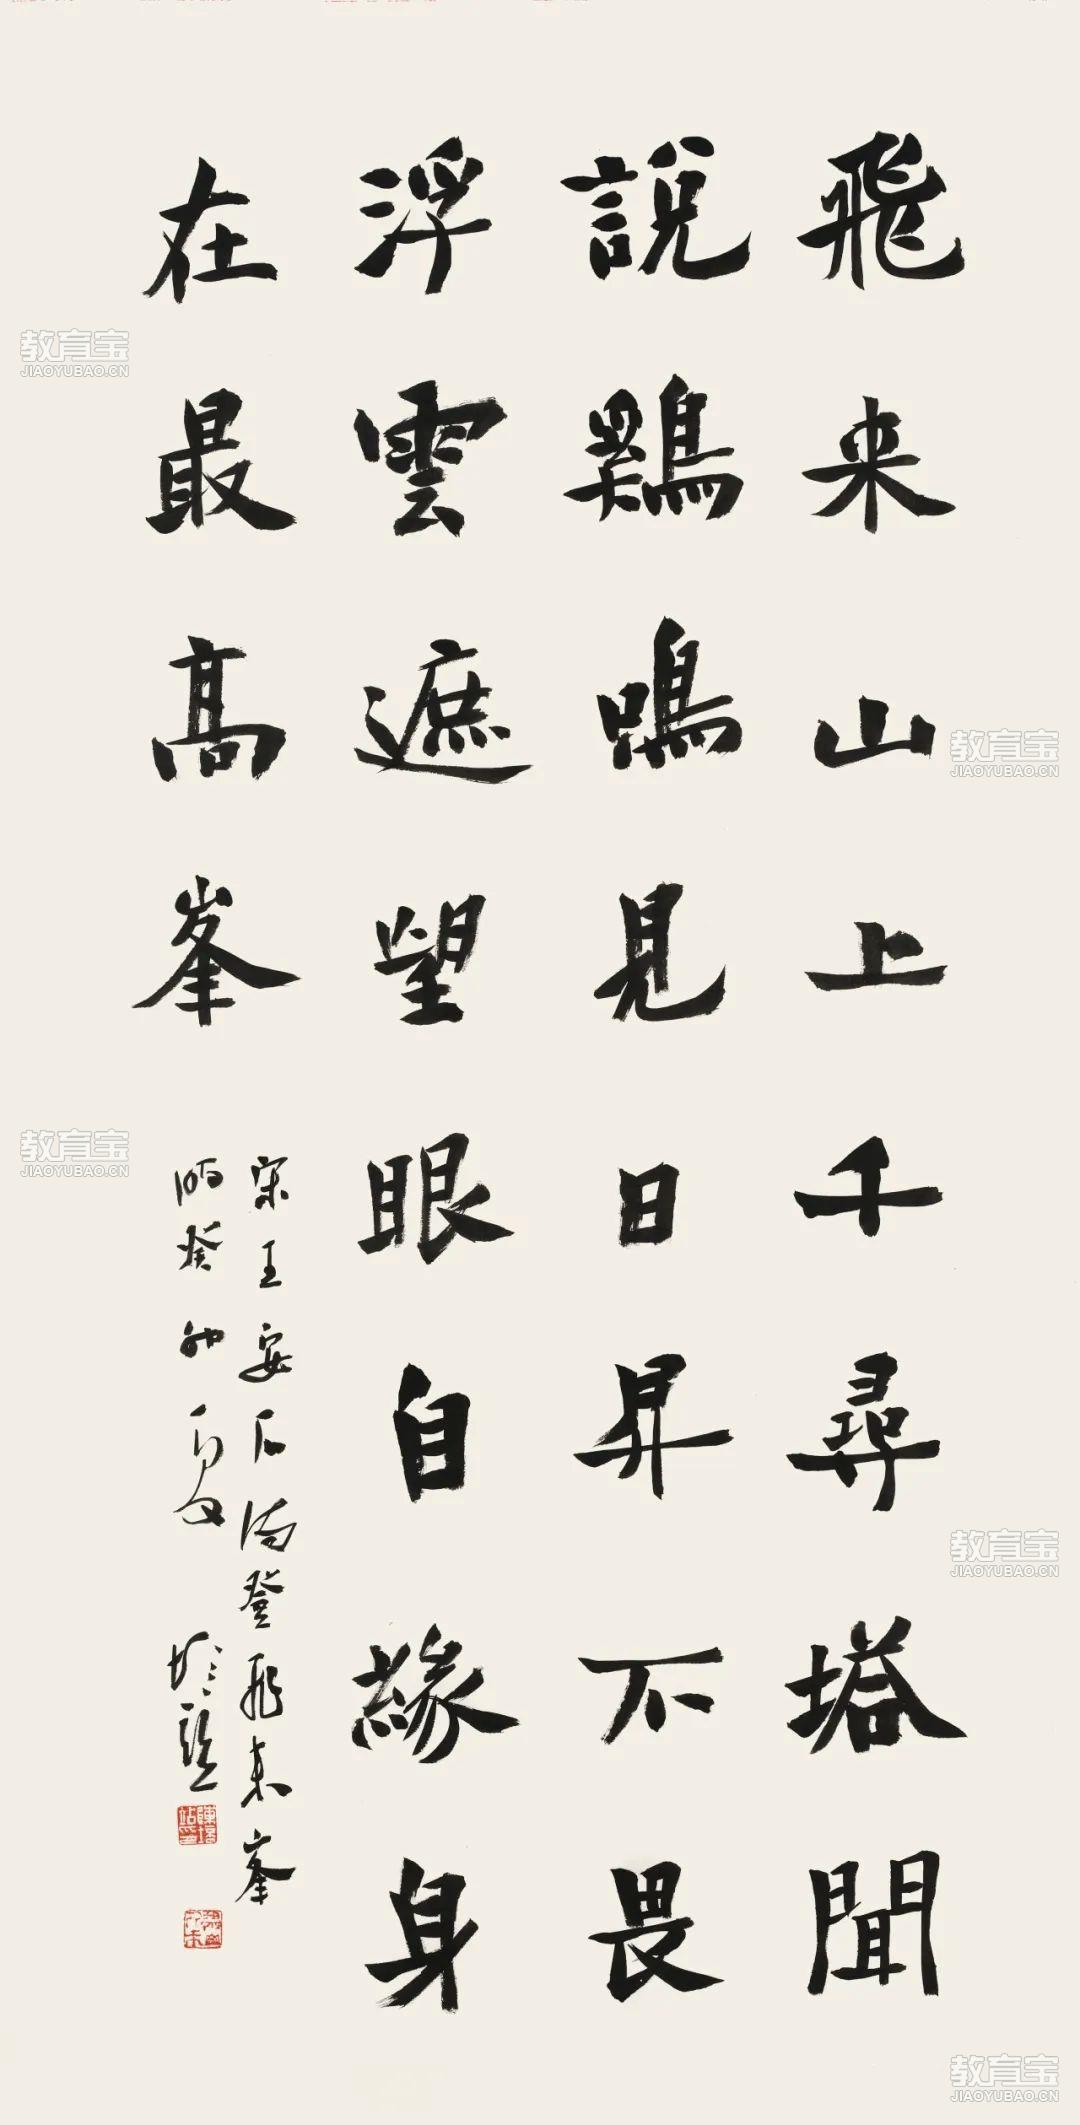 飛来山上千尋塔聞
說鷄鳴見日昇不畏
浮雲遮望眼自緣身
在最高峯
宋王安石詩登飛来峯
時癸卯夏
教育宝
JIAOYUBAO.CN
教育宝
JIAOYUBAO.CN
教育宝
JIAOYUBAO.CN
教育宝
JIAOYUBAO.CN
教育宝
JIAOYUBAO.CN